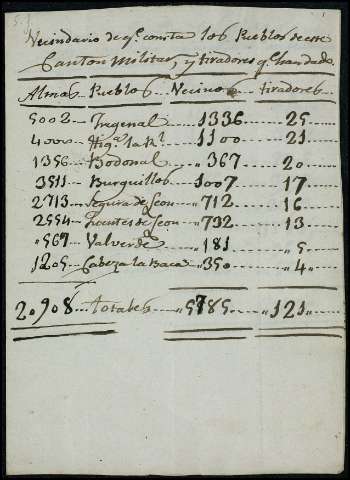 Vecindario de q.e consta los Pueblos de este
Canton Militar, y tiradores q.e han dado
Almas Pueblos Vecinos tiradores
5002 Fregenal 1336 25
4000 Hig.ra la R.l 1100 21
1356 Bodonal 367 20
3511 Burguillos 1007 17
2713 Segura de Leon 712 16
2554 Fuentes de Leon 732 13
567 Valverde 181 5
1205 Cabeza la Baca 350 4
20908 Totales 5785 121